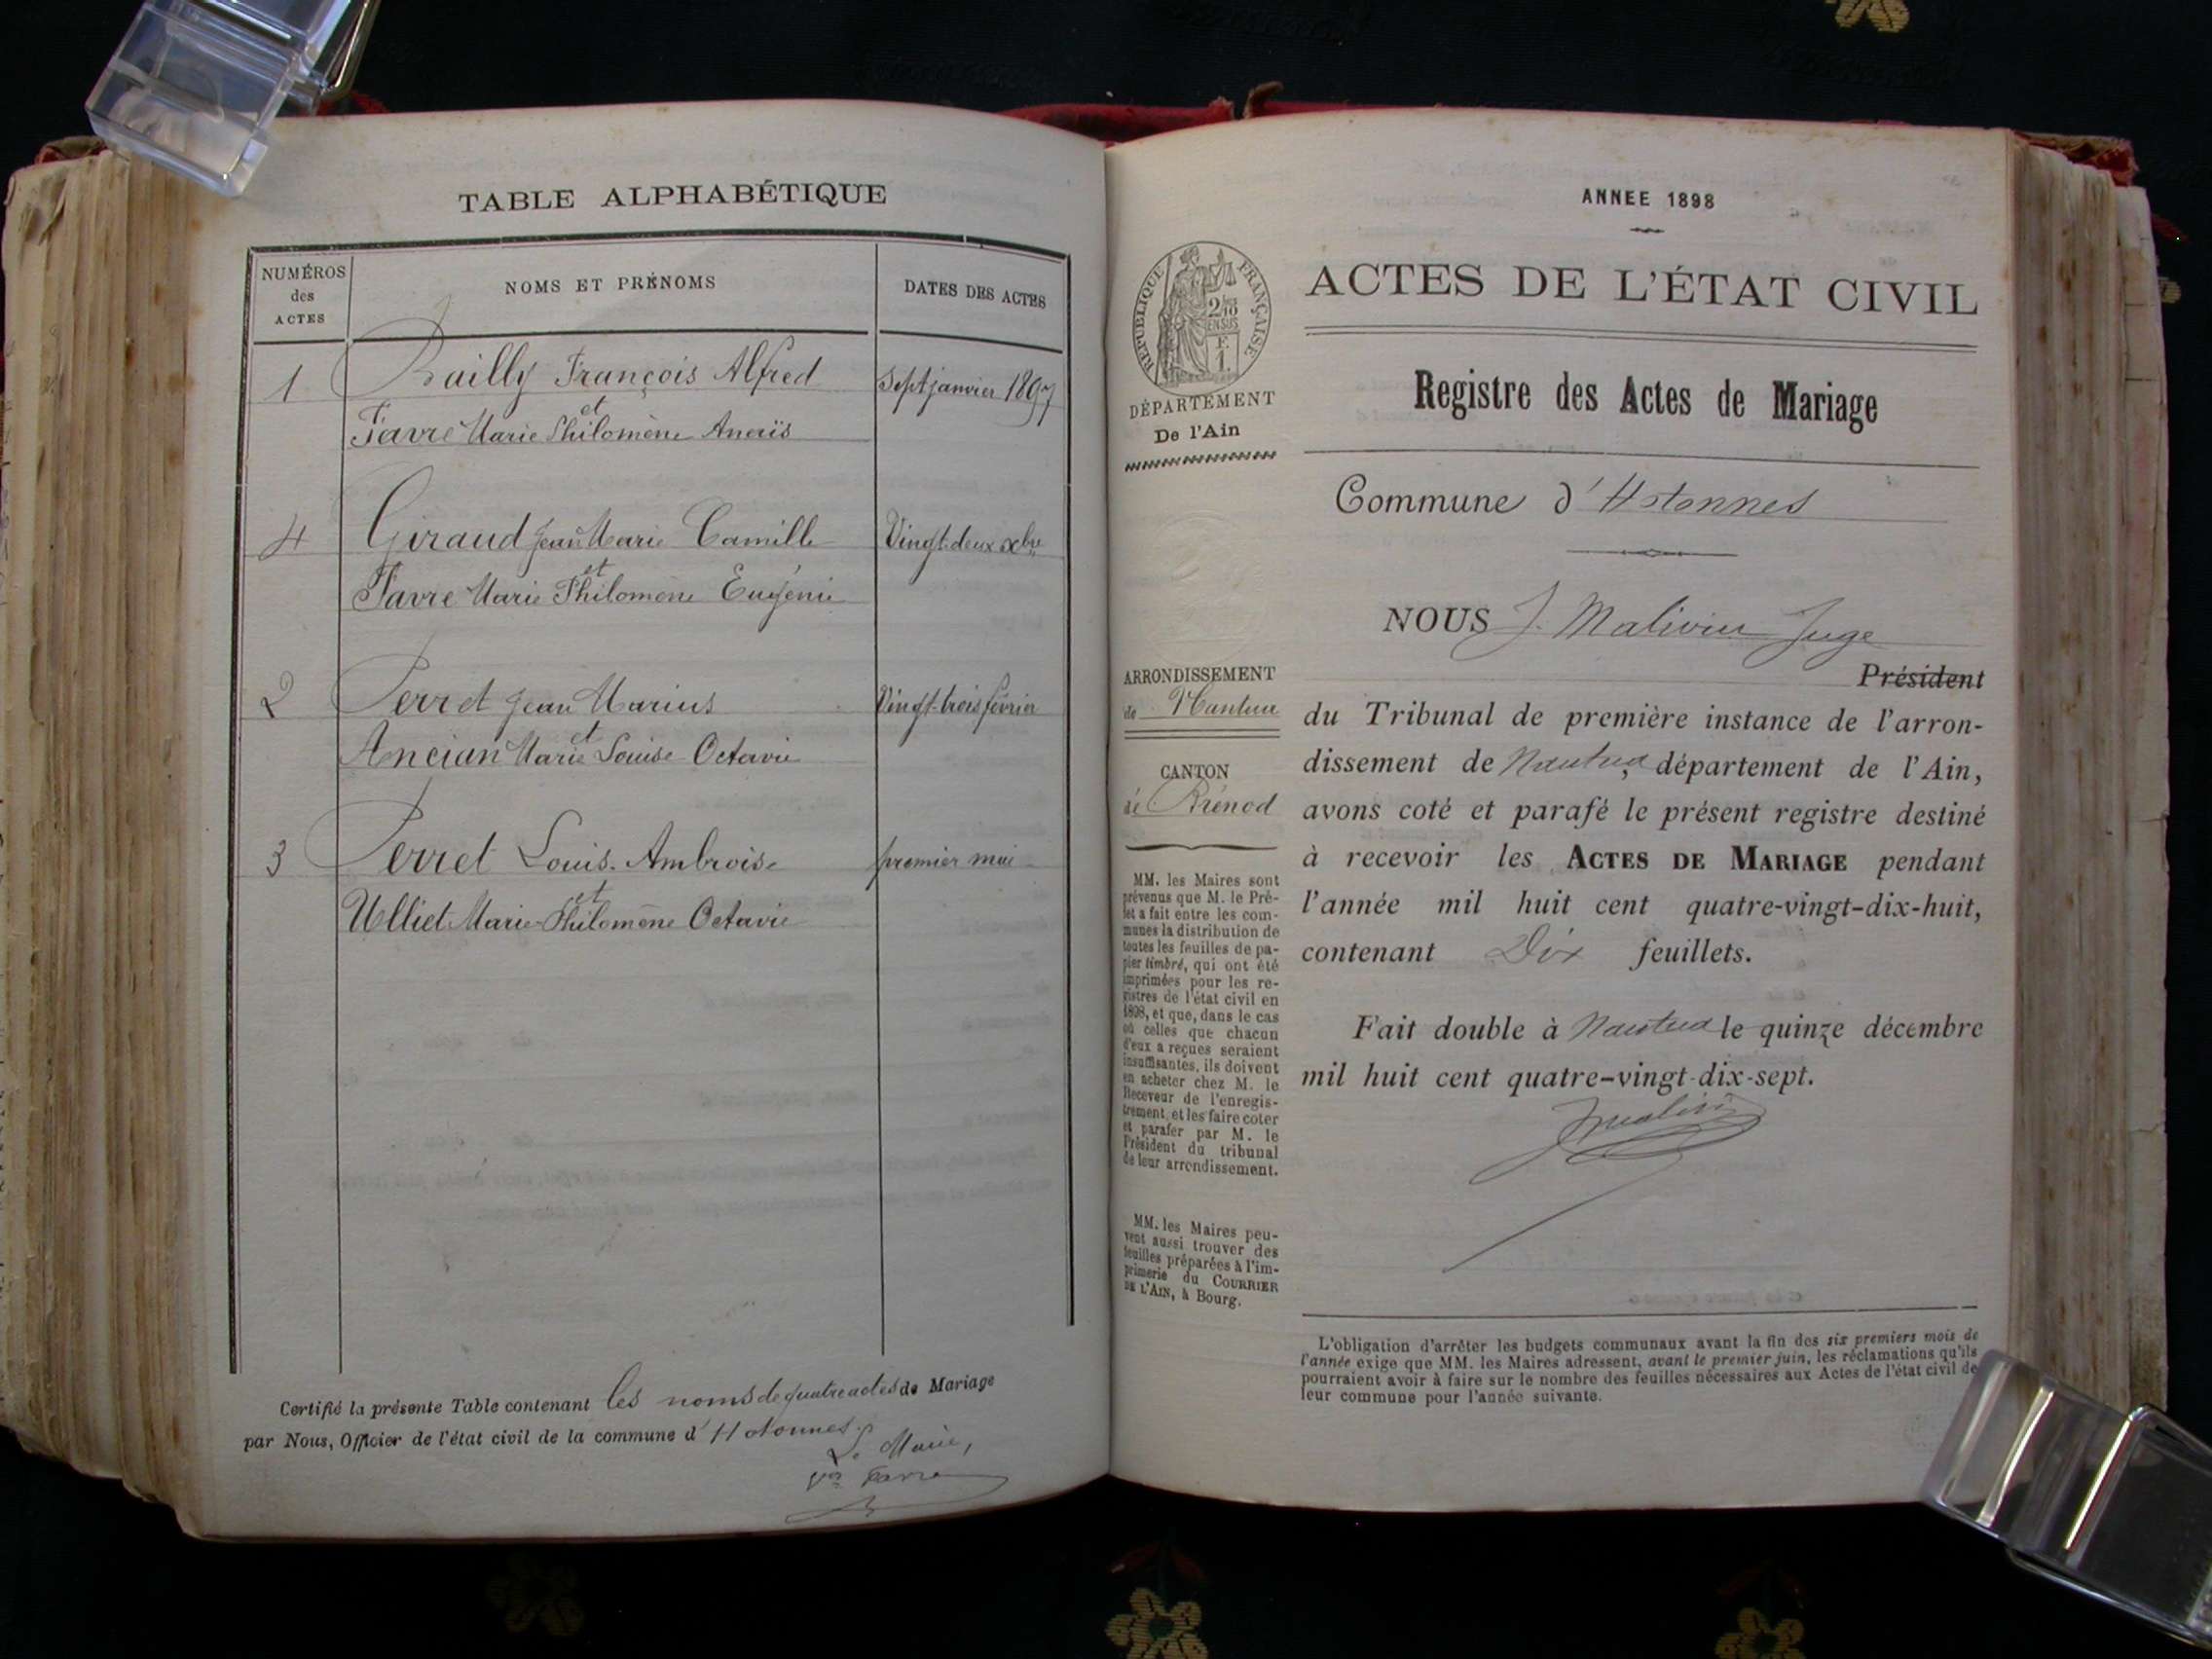 TABLE ALPHABÉTIQUE
NUMÉROS
des
ACTES
NOMS ET PRÉNOMS
DATES DES ACTES
1 Bailly François Alfred Sept janvier 1897
et
Favre Marie Philomène Anaïs
4 Giraud Jean Marie Camille Vingt-deux xbre
et
Favre Marie Philomène Eugénie
2 Perret Jean Marius Vingt-trois février
et
Ancian Marie Louise Octavie
3 Perret Louis Ambroise premier mai
et
Ulliet Marie-Philomène Octavie
Certifié la présente Table contenant les noms de quatre actes de Mariage
par Nous, Officier de l'état civil de la commune d'Hotonnes.
Le Maire,
Favre
ANNEE 1898
REPUBLIQUE FRANÇAISE
DÉPARTEMENT
De l'Ain
ARRONDISSEMENT
de Nantua
CANTON
de Brénod
MM. les Maires sont
prévenus que M. le Pré-
fet a fait entre les com-
munes la distribution de
toutes les feuilles de pa-
pier timbré, qui ont été
imprimées pour les re-
gistres de l'état civil en
1898, et que, dans le cas
où celles que chacun
d'eux a reçues seraient
insuffisantes, ils doivent
en acheter chez M. le
Receveur de l'enregis-
trement, et les faire coter
et parafer par M. le
Président du tribunal
de leur arrondissement.
MM. les Maires peu-
vent aussi trouver des
feuilles préparées à l'im-
primerie du COURRIER
DE L'AIN, à Bourg.
ACTES DE L'ÉTAT CIVIL
Registre des Actes de Mariage
Commune d'Hotonnes
NOUS J. Malivin Juge
Président
du Tribunal de première instance de l'arron-
dissement de Nantua, département de l'Ain,
avons coté et parafé le présent registre destiné
à recevoir les ACTES DE MARIAGE pendant
l'année mil huit cent quatre-vingt-dix-huit,
contenant Dix feuillets.
Fait double à Nantua le quinze décembre
mil huit cent quatre-vingt-dix-sept.
L'obligation d'arrêter les budgets communaux avant la fin des six premiers mois de
l'année exige que MM. les Maires adressent, avant le premier juin, les réclamations qu'ils
pourraient avoir à faire sur le nombre des feuilles nécessaires aux Actes de l'état civil de
leur commune pour l'année suivante.